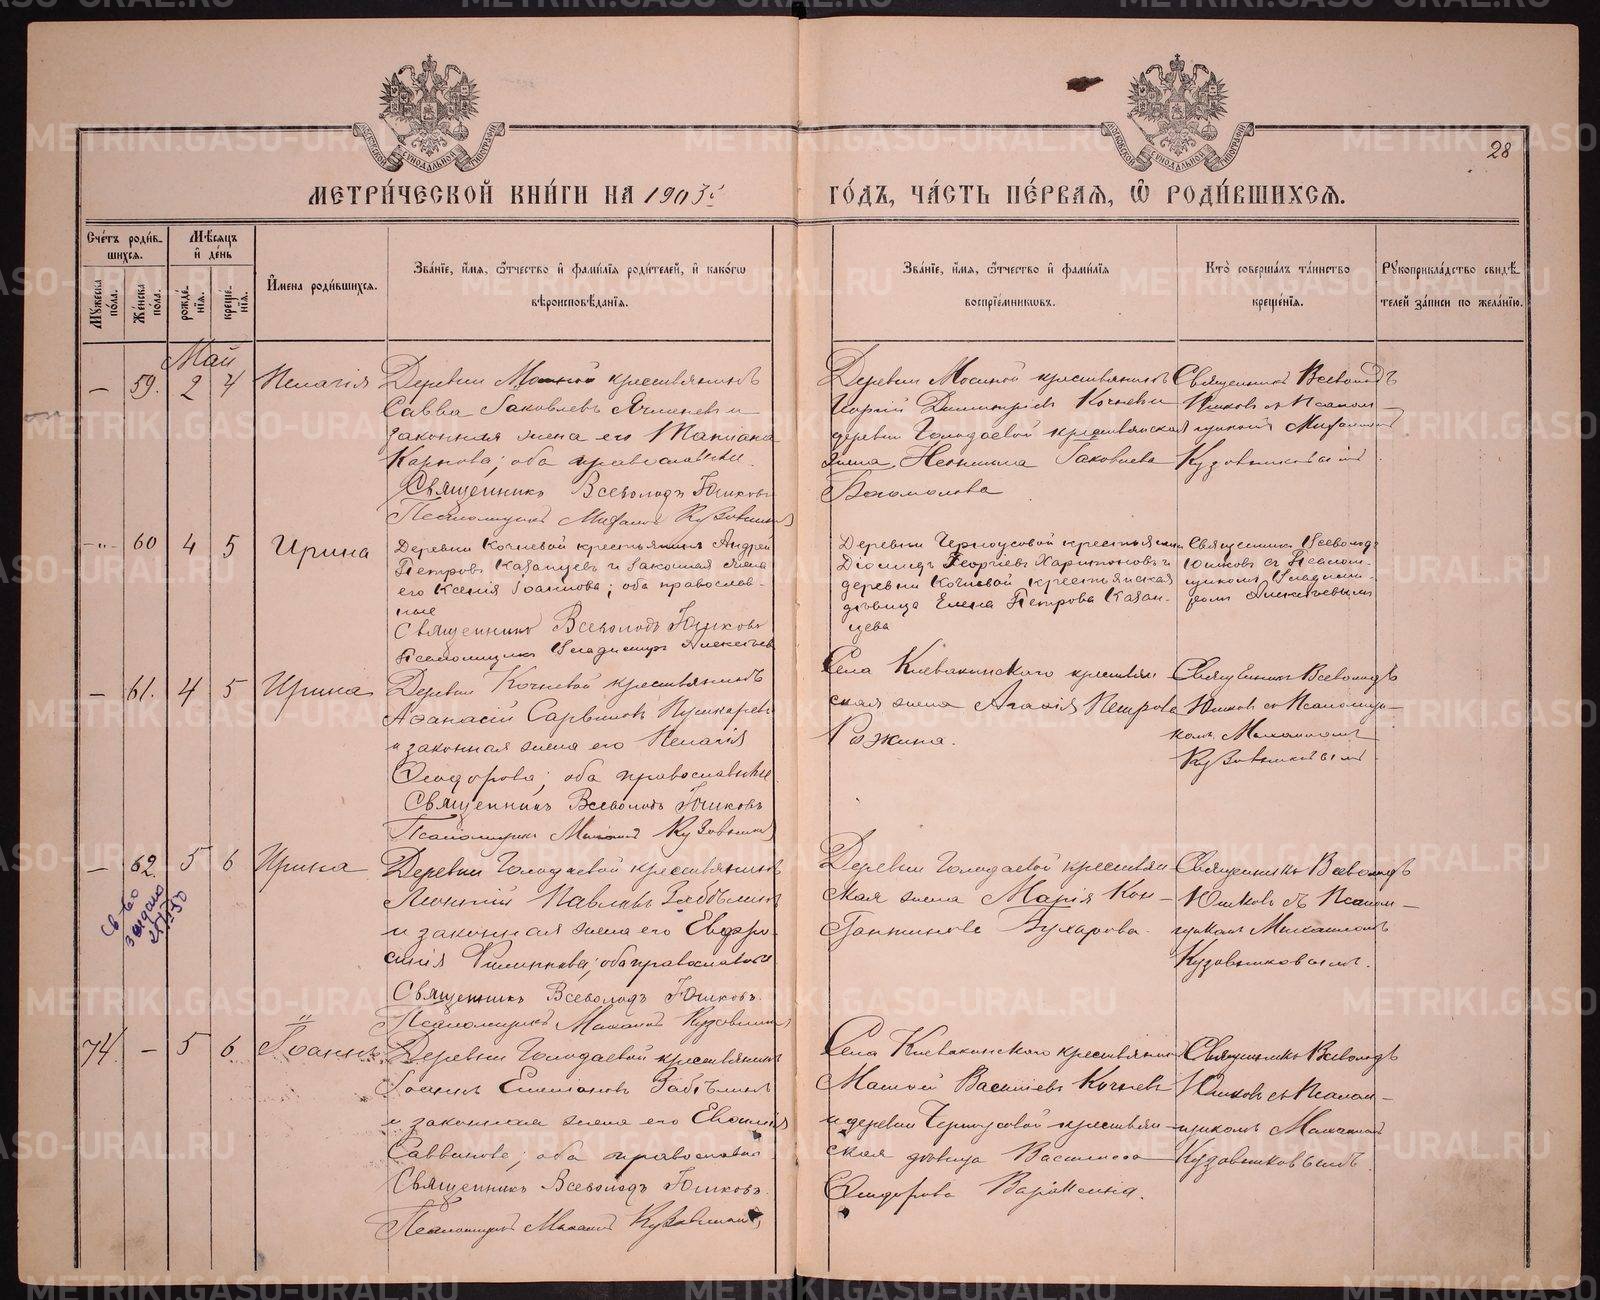 28
МЕТРИ́ЧЕСКОЙ КНИ́ГИ НА 1903й ГО́ДЪ, ЧА́СТЬ ПЕ́РВАЯ, Ѡ РОДИ́ВШИХСЯ.
Сче́тъ роди́в-
шихся.
Му́жеска
по́ла.
Же́нска
по́ла.
Мѣ́сяцъ
и де́нь
рожде́-
нія.
креще́-
нія.
И҆мена роди́вшихся.
Зва́ніе, и҆́мя, ѻ҆́тчество и҆ фами́лія роди́телей, и҆ како́гѡ
вѣроисповѣ́данія.
Зва́ніе, и҆́мя, ѻ҆́тчество и҆ фами́лія
воспріе́мникѡвъ.
Кто̀ соверша́лъ та́инство
креще́нія.
Рꙋкоприкла́дство свидѣ́-
телей за́писи по жела́нію.
Май
— 59. 2 4 Пелагія
Деревни крестьянинъ
Савва Іаковлевъ Ячменевъ и
законная жена его Татиана
Карпова; оба православные.
Священникъ Всеволодъ Юшковъ
Псаломщикъ Кузовников
Деревни Мосиной крестьянинъ
Димитріевъ Кочневъ и
деревни Голодаевой крестьянская
жена, Іаковлева
Богомолова
Священникъ Всеволодъ
Юшковъ съ Псалом-
щикомъ
Кузовниковымъ
—"— 60 4 5 Ирина
Деревни Кочневой крестьянинъ Андрей
Петровъ Казанцевъ и законная жена
его Ксенія Іоаннова; оба православ-
ные
Священникъ Всеволодъ Юшковъ
Псаломщикъ Владимиръ Алексѣевъ
Деревни Черноусовой крестьянинъ
Діомидъ Георгіевъ Харитоновъ и
деревни Кочневой крестьянская
дѣвица Елена Петрова Казан-
цева
Священникъ Всеволодъ
Юшковъ съ Псалом-
щикомъ Владими-
ромъ Алексѣевымъ
— 61. 4 5 Ирина
Деревни Кочневой крестьянинъ
Аѳанасій Пушкаревъ
и законная жена его Пелагія
Ѳеодорова; оба православные
Священникъ Всеволодъ Юшковъ
Псаломщикъ Кузовников
Села Клевакинскаго крестьян-
ская жена Агаѳія Петрова
Рожина.
Священникъ Всеволодъ
Юшковъ съ Псаломщи-
комъ Михаиломъ
Кузовниковымъ
— 62. 5 6 Ирина
Св-во
выдано
Деревни Голодаевой крестьянинъ
Павловъ Забѣлинъ
и законная жена его Евфро-
синія Филиппова; оба православные
Священникъ Всеволодъ Юшковъ.
Псаломщикъ Михаилъ Кузовников
Деревни Голодаевой крестьян-
ская жена Марія Кон-
стантинова Бухарова.
Священникъ Всеволодъ
Юшковъ съ Псалом-
щикомъ Михаиломъ
Кузовниковымъ.
74. — 5 6 Іоаннъ
Деревни Голодаевой крестьянинъ
Іоаннъ Забѣлинъ
и законная жена его
Саввинова; оба православные
Священникъ Всеволодъ Юшковъ.
Псаломщикъ Михаилъ Кузовников
Села Клевакинскаго крестьянинъ
Васильевъ Кочневъ
и деревни Черноусовой крестьян-
ская дѣвица Василисса
Вараксина.
Священникъ Всеволодъ
Юшковъ съ Псалом-
щикомъ Михаиломъ
Кузовниковымъ.
METRIKI.GASO-URAL.RU